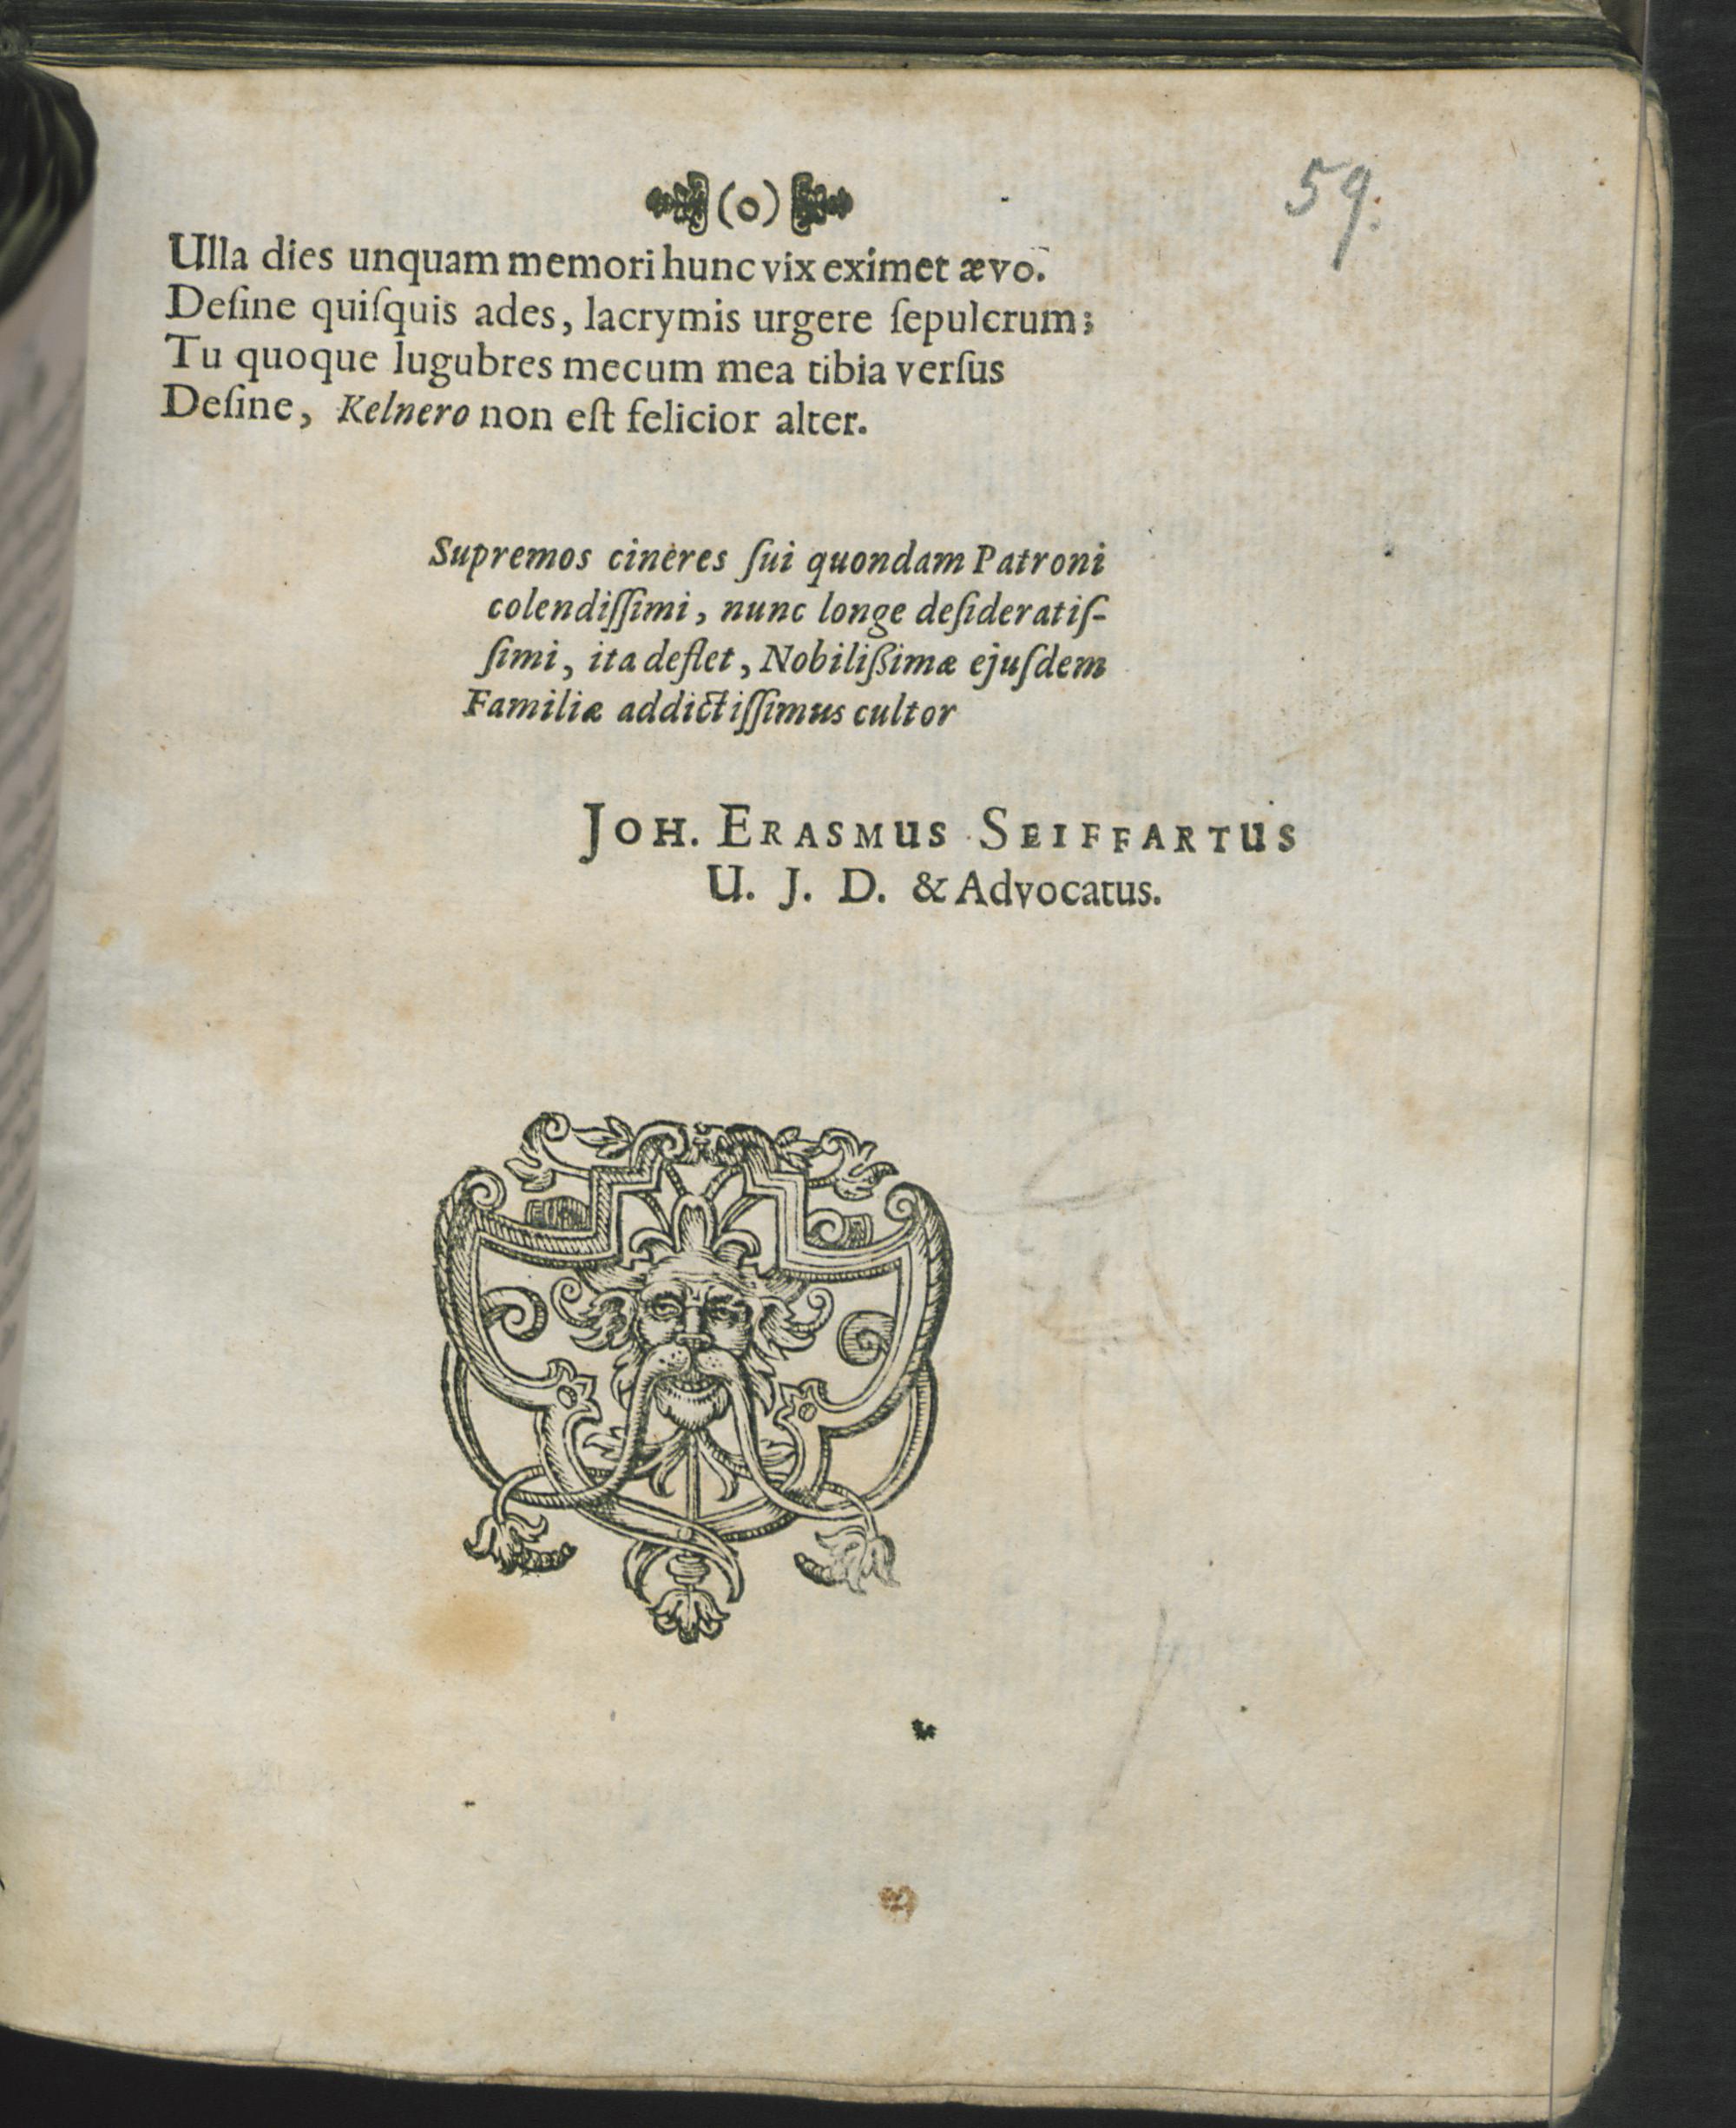 (o)
59.
Ulla dies unquam memori hunc vix eximet ævo.
Deſine quiſquis ades, lacrymis urgere ſepulcrum;
Tu quoque lugubres mecum mea tibia verſus
Deſine, Kelnero non eſt felicior alter.
Supremos cineres ſui quondam Patroni
colendiſſimi, nunc longe deſideratiſ-
ſimi, ita deflet, Nobilißimæ ejuſdem
Familiæ addictiſſimus cultor
JOH. ERASMUS SEIFFARTUS
U. J. D. & Advocatus.